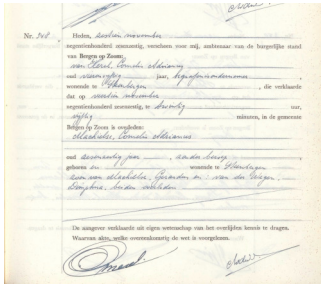 Nr. 348
Heden, zestien november
negentienhonderd zesenzestig, verscheen voor mij, ambtenaar van de burgerlijke stand
van Bergen op Zoom:
van Cornelis Adrianus
oud jaar, begrafenisondernemer,
wonende te Steenbergen, die verklaarde
dat op veertien november
negentienhonderd zesenzestig, te twintig uur,
vijftig minuten, in de gemeente
Bergen op Zoom is overleden:
Machielse, Cornelis Adrianus
oud zesenzestig jaar, zonder beroep
geboren en wonende te Steenbergen
zoon van Machielse, en van der
beiden overleden
De aangever verklaarde uit eigen wetenschap van het overlijden kennis te dragen.
Waarvan akte, welke overeenkomstig de wet is voorgelezen.